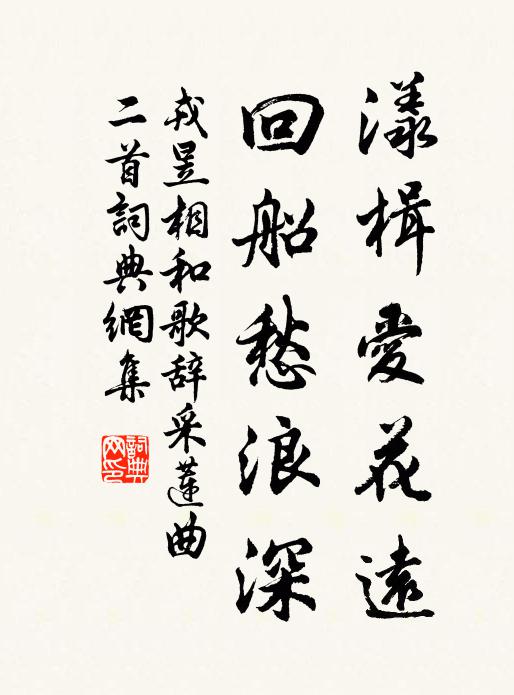 漾楫愛花遠
回船愁浪深
戎昱相和歌辞采蓮曲
二首詞典網集
詞典网印